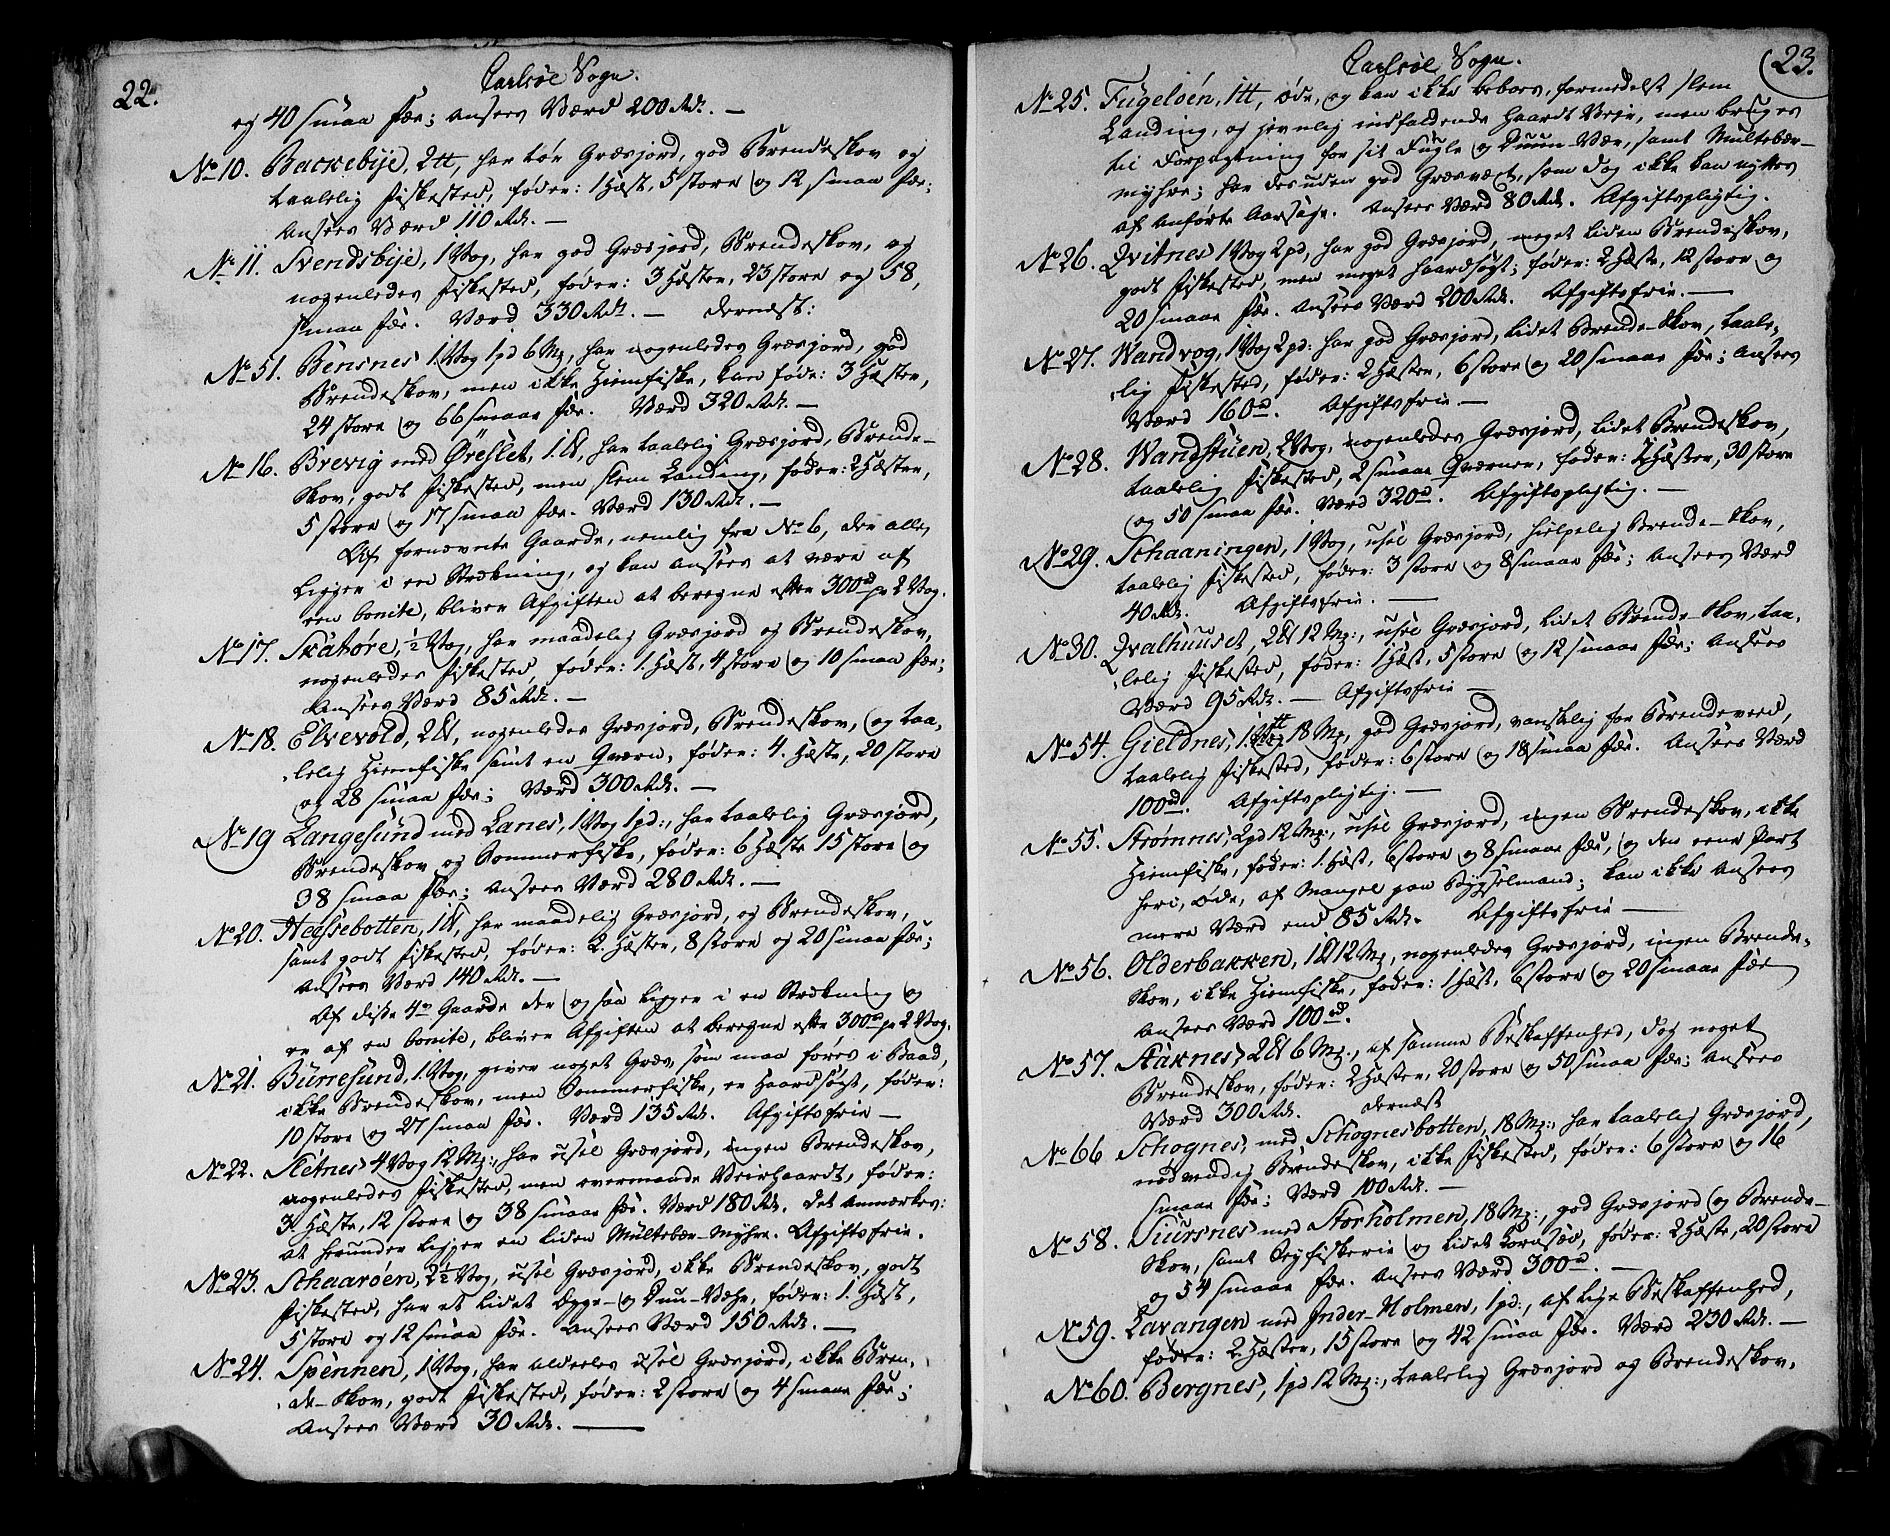 22.
Carlsöe Sogn.
og 40 smaa Fæe; ansees Værd 200 Rdr. —
No 10. Backebye, 2tt, har tør Græsjord, god Brendeskov og
taalelig Fiskested, føder: 1 Hæst, 5 store og 12 smaa Fæe;
Ansees Værd 110 Rdr. —
No 11. Svendsbye, 1 Vog, har god Græsjord, Brendeskov, og
nogenledes Fiskested, føder: 3 Hæster, 23 store og 58,
smaa Fæe. Værd 330 Rdr. — dernest:
No 51. Bensnes 1 Vog 1 pd 6 Mz, har nogenledes Græsjord, god
Brendeskov, men ikke Hiemfiske, kan føde: 3 Hæster,
24 store og 66 smaa Fæe. Værd 320 Rdr. —
No 16. Brevig med Øreslet, 1 , har taalelig Græsjord, Brende-
skov, godt Fiskested, men slem Landing, føder: 2 Hæster,
5 store og 17 smaa Fæe. Værd 130 Rdr. —
Af fornævnte Gaarde, nemlig fra No 6, der alle
ligger i een Strækning, og kan ansees at være af
een bonite, bliver Afgiften at beregne efter 300rd pr 2 Vog.
No 17. Skatøre, ½ Vog, har maadelig Græsjord og Brendeskov,
nogenledes Fiskested, føder: 1. Hæst, 4 store og 10 smaa Fæe;
Ansees Værd 85 Rdr. —
No 18. Elvevold, 2 , nogenledes Græsjord, Brendeskov, og taa-
lelig Hiemfiske samt en Qværn, føder: 4. Hæste, 20 store
og 28 smaa Fæe; Værd 300 Rdr. —
No 19 Langesund med Lanes, 1 Vog 1 pd:, har taalelig Græsjord,
Brendeskov og Sommerfiske, føder: 6 Hæste 15 store og
38 smaa Fæe; Ansees Værd 280 Rdr. —
No 20. Hessebotten, 1 , har maadelig Græsjord, og Brendeskov,
samt godt Fiskested, føder: 2. Hæster, 8 store og 20 smaa Fæe;
Ansees Værd 140 Rdr. —
Af disse 4re Gaarde der ogsaa ligger i en Strækning og
er af en bonite, bliver Afgiften at beregne efter 300rd pr 2 Vog.
No 21. Burresund, 1. Vog, giver noget Græs, som maa føres i Baad,
ikke Brendeskov, men Sommerfiske, er Haardsøgt, føder:
10 store og 27 smaa Fæe. Værd 135 Rdr. Afgiftsfrie —
No 22. Sletnes 4 Vog 12 Mz:, har usel Græsjord, ingen Brendeskov,
nogenledes Fiskested, men overmaade Veirhaardt, føder:
3 Hæste, 12 store og 38 smaa Fæe. Værd 180 Rdr. Det anmærkes:
at herunder ligger en liden Multebær-Myhre. Afgiftsfrie.
No 23. Schaarøen, 2½ Vog, usel Græsjord, ikke Brendeskov, godt
Fiskested, har et lidet Egge- og Duu-Væhr, føder: 1. Hæst,
5 store og 12 smaa Fæe. Ansees Værd 150 Rdr. —
No 24. Spennen, 1 Vog, har aldeeles usel Græsjord, ikke Bren-
de-Skov, godt Fiskested, føder: 2 store og 4 smaa Fæe;
Ansees Værd 30 Rdr. —
23.
Carlsöe Sogn.
No 25. Fugeløen, 1tt, øde, og kan ikke beboes, formedelst slem
Landing, og jevnlig indfaldende haardt Veir, men bruges
til Forpagtning for sit Fugle og Duun-Vær, samt Multebær-
myhre; har desuden god Græsvæxt, som dog ikke kan nyttes
af anførte Aarsage. Ansees Værd 80 Rdr. Afgiftspligtig.
No 26. Qvitnes 1 Vog 2 pd, har god Græsjord, meget liden Brendeskov,
godt Fiskested, men meget haardsøgt; føder: 2 Hæste, 12 store og
20 smaae Fæe. Ansees Værd 200 Rdr. Afgiftsfrie. —
No 27. Wandvog, 1 Vog 2 pd: har god Græsjord, lidet Brende-Skov, taale-
lig Fiskested, føder: 2 Hæster, 6 store og 20 smaae Fæe; Ansees
Værd 160rd. Afgiftsfrie. —
No 28. Wandstuen, 2 Vog, nogenledes Græsjord, lidet Brendeskov,
taalelig Fiskested, 2 smaae Qværner, føder: 2 Hæster, 30 store
og 50 smaa Fæe. Værd 320rd. Afgiftspligtig. —
No 29. Schaaningen, 1 Vog, usel Græsjord, hielpelig Brende-Skov,
taalelig Fiskested, føder: 3 store og 8 smaae Fæe; Ansees Værd
40 Rdr. Afgiftsfrie. —
No 30. Qvalhuuset, 2 12 Mz:, usel Græsjord, lidet Brende-Skov, taa-
lelig Fiskested, føder: 1 Hæst, 5 store og 12 smaae Fæe; Ansees
Værd 95 Rdr. — Afgiftsfrie —
No 54. Gieldnes, 1. 18 Mz, god Græsjord, vanskelig for Brendeveed,
taalelig Fiskested, føder: 6 store og 18 smaae Fæe. Ansees Værd
100rd. Afgiftspligtig. —
No 55. Strømnes, 2 pd 12 Mz:, usel Græsjord, ingen Brendeskov, ikke
Hiemfiske, føder: 1. Hæst, 6 store og 8 smaae Fæe, og den eene Part
heri, øde, af Mangel paa Bygselmand; kan ikke ansees
mere Værd end 85 Rdr. Afgiftsfrie —
No 56. Olderbakken, 1 12 Mz, nogenledes Græsjord, ingen Brende-
skov, ikke Hiemfiske, føder: 1 Hæst, 6 store og 20 smaae Fæe
Ansees Værd 100rd.
No 57. Staknes, 2 6 Mz:, af samme Beskaffenhed, dog noget
Brendeskov, føder: 2 Hæster, 20 store og 50 smaae Fæe; Ansees
Værd 300 Rdr. dernæst
No 66 Schognes, med Schognesbotten, 18 Mz:, har taalelig Græsjord,
nødvendig Brendeskov, ikke Fiskested, føder: 6 store og 16
smaae Fæe; Værd 100 Rdr. —
No 58. Siursnes med Storholmen, 18 Mz:, god Græsjord og Brende-
skov, samt Seyfiskerie og lidet Kornsæd, føder: 2 Hæste, 20 store
og 54 smaae Fæe. Ansees Værd 300rd. —
No 59. Lavangen med Inder-Holmen, 1 pd:, af lige Beskaffenhed,
føder: 2. Hæster, 15 store og 42 smaa Fæe. Værd 230 Rdr. —
No 60. Bergnes, 1 pd 12 Mz:, taalelig Græsjord og Brendeskov,